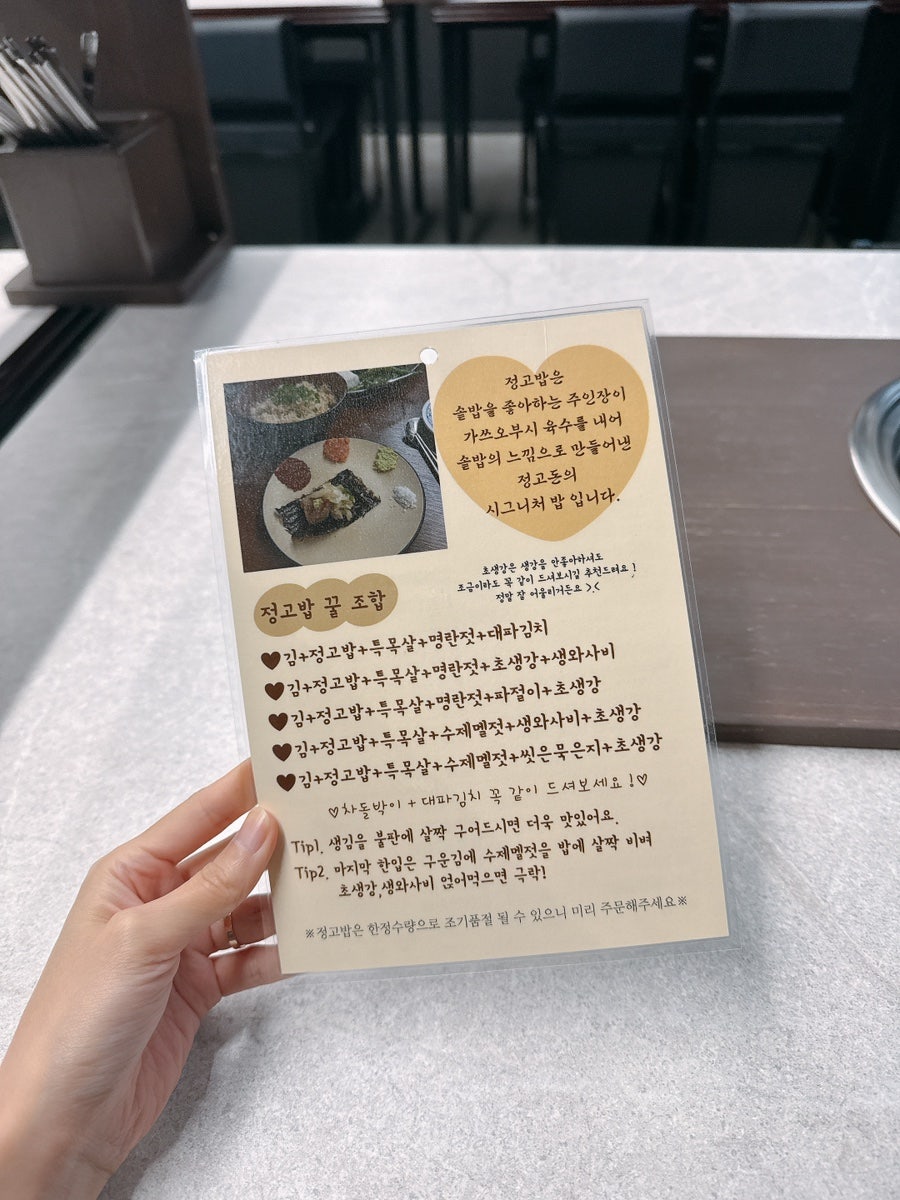 정고밥은
솥밥을 좋아하는 주인장이
가쓰오부시 육수를 내어
솥밥의 느낌으로 만들어낸
정고돈의
시그니처 밥 입니다.
초생강은 생강을 안좋아하셔도
조금이라도 꼭 같이 드셔보시길 추천드려요!
정말 잘 어울리거든요 >.<
정고밥 꿀 조합
♥김+정고밥+특목살+명란젓+대파김치
♥김+정고밥+특목살+명란젓+초생강+생와사비
♥김+정고밥+특목살+명란젓+파절이+초생강
♥김+정고밥+특목살+수제멜젓+생와사비+초생강
♥김+정고밥+특목살+수제멜젓+씻은묵은지+초생강
♡차돌박이 + 대파김치 꼭 같이 드셔보세요!♡
Tip1. 생김을 불판에 살짝 구어드시면 더욱 맛있어요.
Tip2. 마지막 한입은 구운김에 수제멜젓을 밥에 살짝 비벼
초생강,생와사비 얹어먹으면 극락!
※정고밥은 한정수량으로 조기품절 될 수 있으니 미리 주문해주세요※